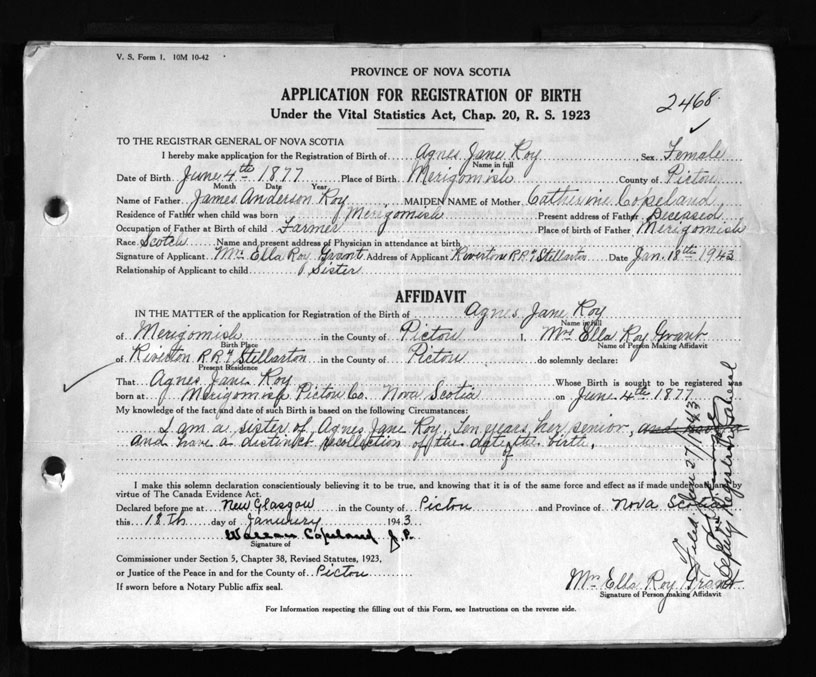 V. S. Form 1. 10M 10-42
PROVINCE OF NOVA SCOTIA
APPLICATION FOR REGISTRATION OF BIRTH
Under the Vital Statistics Act, Chap. 20, R. S. 1923
2468
TO THE REGISTRAR GENERAL OF NOVA SCOTIA
I hereby make application for the Registration of Birth of Agnes Jane Roy Sex Female
Name in full
Date of Birth June 4th 1877 Place of Birth Merigomish County of Pictou
Month Date Year
Name of Father James Anderson Roy MAIDEN NAME of Mother Catherine Copeland
Residence of Father when child was born Merigomish Present address of Father Deceased
Occupation of Father at Birth of child Farmer Place of birth of Father Merigomish
Race Scotch Name and present address of Physician in attendance at birth
Signature of Applicant Mrs Ella Roy Grant Address of Applicant Riverton R.R. 1 Stellarton Date Jan. 18th 1943
Relationship of Applicant to child Sister
AFFIDAVIT
IN THE MATTER of the application for Registration of the Birth of Agnes Jane Roy
Name in full
of Merigomish in the County of Pictou I, Mrs Ella Roy Grant
Birth Place Name of Person Making Affidavit
of Riverton R.R. 1 Stellarton in the County of Pictou do solemnly declare:
Present Residence
That Agnes Jane Roy Whose Birth is sought to be registered was
born at Merigomish Pictou Co. Nova Scotia on June 4th 1877
My knowledge of the fact and date of such Birth is based on the following Circumstances:
I am a sister of Agnes Jane Roy, Ten years her senior,
and have a distinct recollection of the date of the birth.
I make this solemn declaration conscientiously believing it to be true, and knowing that it is of the same force and effect as if made under oath and by
virtue of The Canada Evidence Act.
Declared before me at New Glasgow in the County of Pictou and Province of Nova Scotia
this 18th day of January 1943
Warren Copeland J.P.
Signature of
Commissioner under Section 5, Chapter 38, Revised Statutes, 1923,
or Justice of the Peace in and for the County of Pictou
If sworn before a Notary Public affix seal.
Mrs Ella Roy Grant
Signature of Person making Affidavit
For Information respecting the filling out of this Form, see Instructions on the reverse side.
Filed Jan 27/1943
Deputy Registrar General